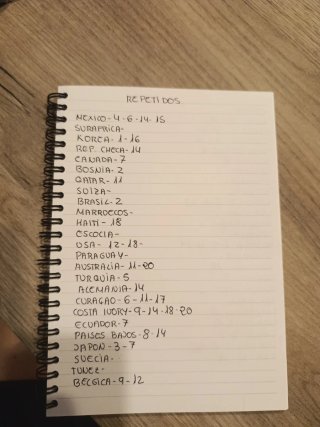 REPETIDOS
MEXICO-4-6-14-15
SURAFRICA-
KOREA-1-16
REP. CHECA-14
CANADA-7
BOSNIA-2
QATAR-11
SUIZA-
BRASIL-2
MARRUECOS-
HAITI-18
ESCOCIA-
USA-12-18-
PARAGUAY-
AUSTRALIA-11-20
TURQUIA-5
ALEMANIA-14
CURAÇAO-6-11-17
COSTA IVORY-9-14-18-20
ECUADOR-7
PAISES BAJOS-8-14
JAPON-3-7
SUECIA-
TUNEZ-
BÉLGICA-9-12